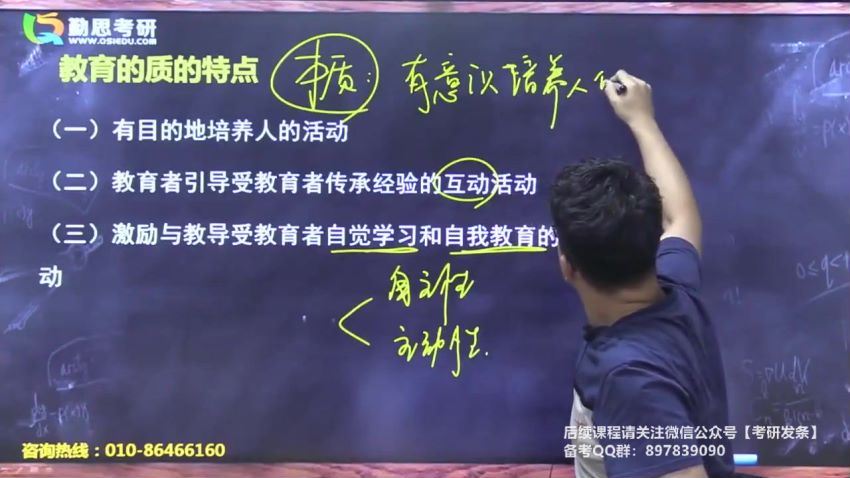 勤思考研
WWW.QSIEDU.COM
教育的质的特点
本质：有意识培养人的
（一）有目的地培养人的活动
（二）教育者引导受教育者传承经验的互动活动
（三）激励与教导受教育者自觉学习和自我教育的
动
自主性
主动性.
咨询热线：010-86466160
后续课程请关注微信公众号【考研发条】
备考QQ群：897839090